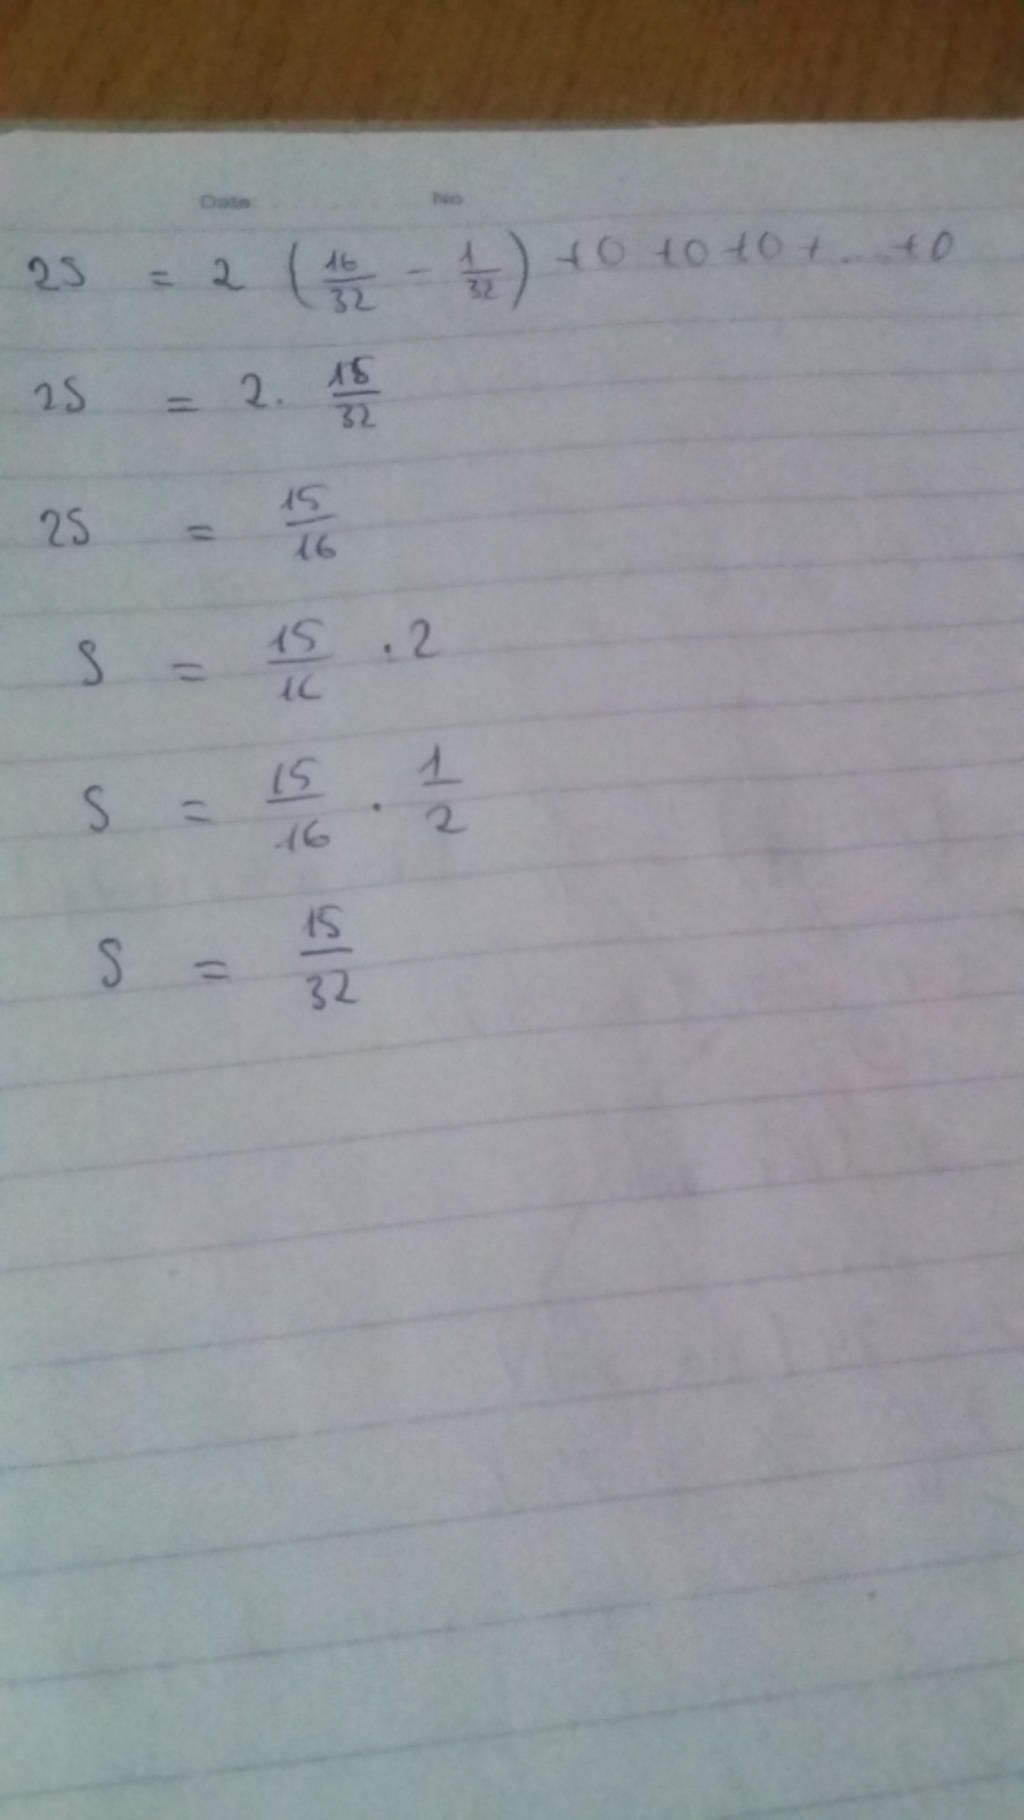 Date No
2S = 2 (16/32 - 1/32) + 0 + 0 + 0 + ... + 0
2S = 2 . 15/32
2S = 15/16
S = 15/16 . 2
S = 15/16 . 1/2
S = 15/32